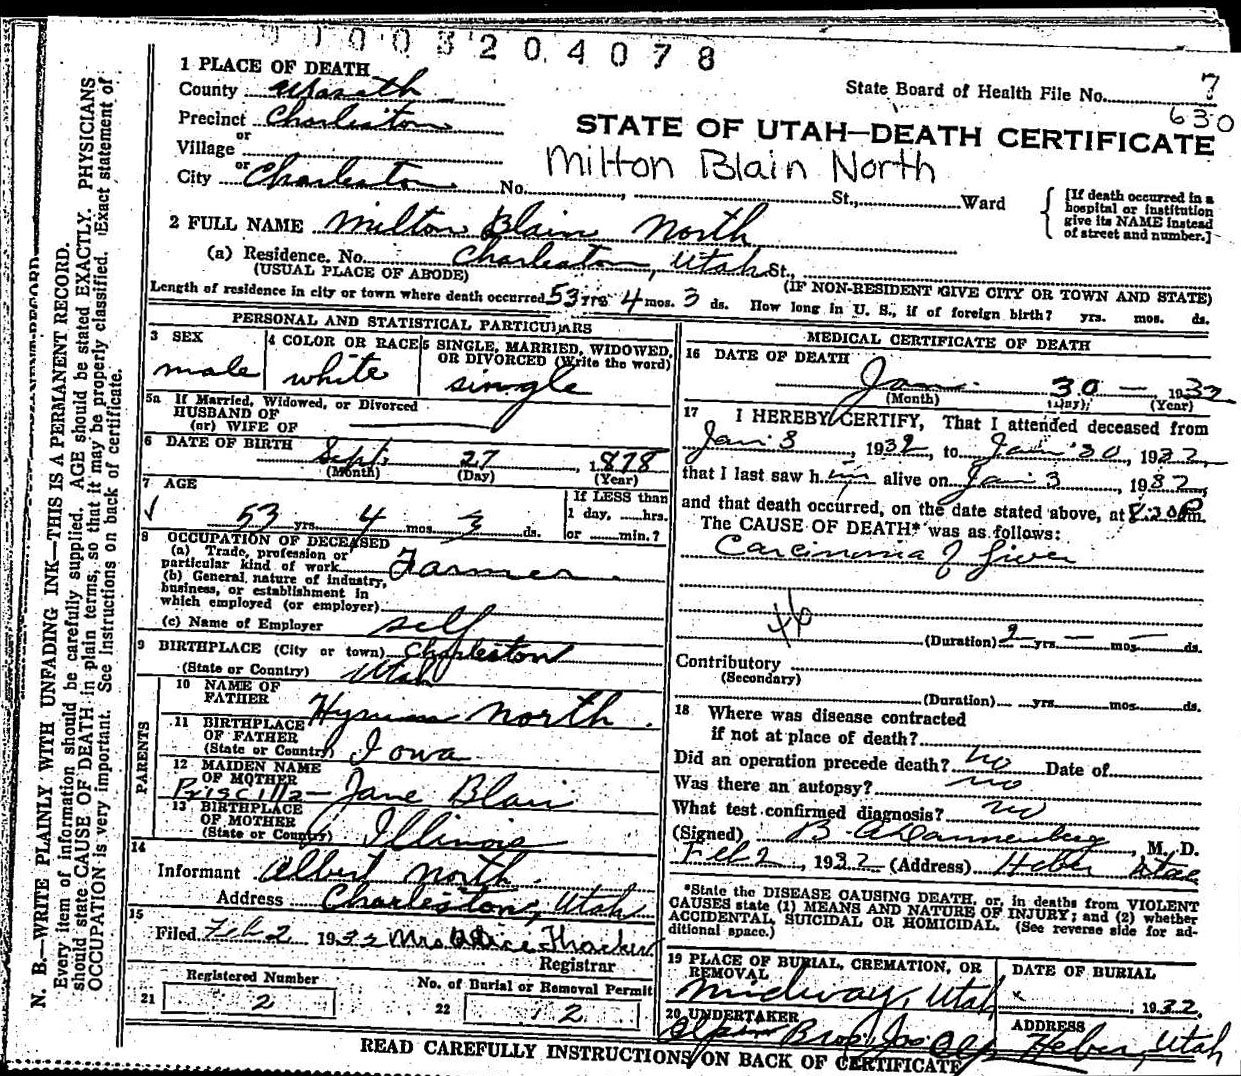 0003204078
1 PLACE OF DEATH
County Wasatch
State Board of Health File No. 7
630
Precinct Charleston
or
Village
STATE OF UTAH—DEATH CERTIFICATE
Milton Blain North
or
City Charleston No. , St., Ward
[If death occurred in a
hospital or institution
give its NAME instead
of street and number.]
2 FULL NAME Milton Blain North
(a) Residence. No. Charleston, Utah St.,
(USUAL PLACE OF ABODE) (IF NON-RESIDENT GIVE CITY OR TOWN AND STATE)
Length of residence in city or town where death occurred 53 yrs 4 mos. 3 ds. How long in U. S., if of foreign birth? yrs. mos. ds.
PERSONAL AND STATISTICAL PARTICULARS
3 SEX
male
4 COLOR OR RACE
white
5 SINGLE, MARRIED, WIDOWED,
OR DIVORCED (Write the word)
single
5a If Married, Widowed, or Divorced
HUSBAND OF
(or) WIFE OF
6 DATE OF BIRTH
Sept. 27, 1878
(Month) (Day) (Year)
7 AGE
53 yrs. 4 mos. 3 ds.
If LESS than
1 day, hrs.
or min.?
8 OCCUPATION OF DECEASED
(a) Trade, profession or
particular kind of work Farmer
(b) General nature of industry,
business, or establishment in
which employed (or employer)
(c) Name of Employer self
9 BIRTHPLACE (City or town) Charleston
(State or Country) Utah
PARENTS
10 NAME OF
FATHER Hyrum North
11 BIRTHPLACE
OF FATHER
(State or Country) Iowa
12 MAIDEN NAME
OF MOTHER
Priscilla- Jane Blair
13 BIRTHPLACE
OF MOTHER
(State or Country) Illinois
14
Informant Albert North
Address Charleston, Utah
15
Filed Feb 2 1932 Mrs Thacker
Registrar
Registered Number
21 2
No. of Burial or Removal Permit
22 2
MEDICAL CERTIFICATE OF DEATH
16 DATE OF DEATH
Jan. 30 — 1932
(Month) (Day) (Year)
17 I HEREBY CERTIFY, That I attended deceased from
Jan 3, 1932, to Jan 30, 1932,
that I last saw him alive on Jan 3, 1932,
and that death occurred, on the date stated above, at 8:30 P m.
The CAUSE OF DEATH* was as follows:
Carcinoma of Liver
46
(Duration) 2 yrs. — mos. — ds.
Contributory
(Secondary)
(Duration) yrs. mos. ds.
18 Where was disease contracted
if not at place of death?
Did an operation precede death? no Date of
Was there an autopsy? no
What test confirmed diagnosis? no
(Signed) B. A. Dannenberg, M. D.
Feb 2, 1932 (Address) Heber Utah
*State the DISEASE CAUSING DEATH, or, in deaths from VIOLENT
CAUSES state (1) MEANS AND NATURE OF INJURY; and (2) whether
ACCIDENTAL, SUICIDAL OR HOMICIDAL. (See reverse side for ad-
ditional space.)
19 PLACE OF BURIAL, CREMATION, OR
REMOVAL
Midway, Utah
DATE OF BURIAL
1932
20 UNDERTAKER
Bros
ADDRESS
Heber, Utah
READ CAREFULLY INSTRUCTIONS ON BACK OF CERTIFICATE
N. B.—WRITE PLAINLY WITH UNFADING INK—THIS IS A PERMANENT RECORD.
Every item of information should be carefully supplied. AGE should be stated EXACTLY. PHYSICIANS
should state CAUSE OF DEATH in plain terms, so that it may be properly classified. Exact statement of
OCCUPATION is very important. See instructions on back of certificate.